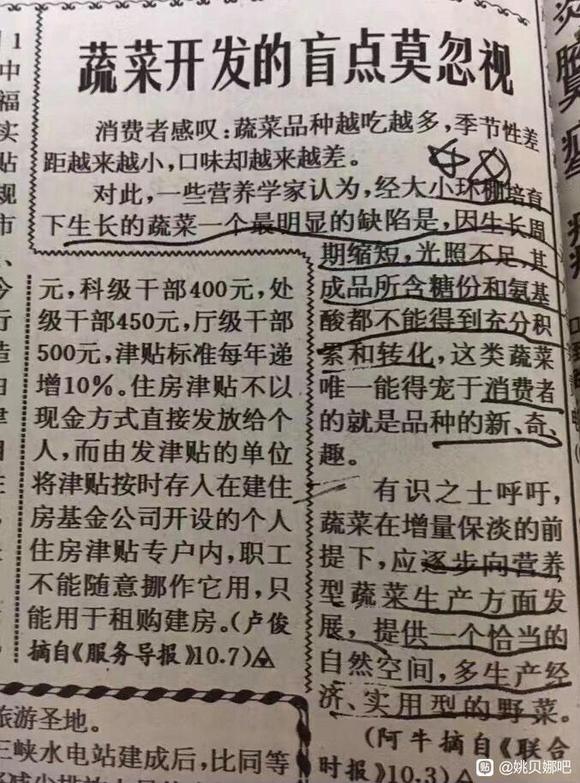 蔬菜开发的盲点莫忽视
消费者感叹：蔬菜品种越吃越多，季节性差
距越来越小，口味却越来越差。
对此，一些营养学家认为，经大小环棚培育
下生长的蔬菜一个最明显的缺陷是，因生长周
期缩短，光照不足，其
成品所含糖份和氨基
酸都不能得到充分积
累和转化，这类蔬菜
唯一能得宠于消费者
的就是品种的新、奇、
趣。
有识之士呼吁，
蔬菜在增量保淡的前
提下，应逐步向营养
型蔬菜生产方面发
展，提供一个恰当的
自然空间，多生产经
济、实用型的野菜。
（阿牛摘自《联合
时报》10.3）
元，科级干部400元，处
级干部450元，厅级干部
500元，津贴标准每年递
增10%。住房津贴不以
现金方式直接发放给个
人，而由发津贴的单位
将津贴按时存入在建住
房基金公司开设的个人
住房津贴专户内，职工
不能随意挪作它用，只
能用于租购建房。（卢俊
摘自《服务导报》10.7）
旅游圣地。
三峡水电站建成后，比同等
1
中
福
实
贴
规
市
贴 @姚贝娜吧